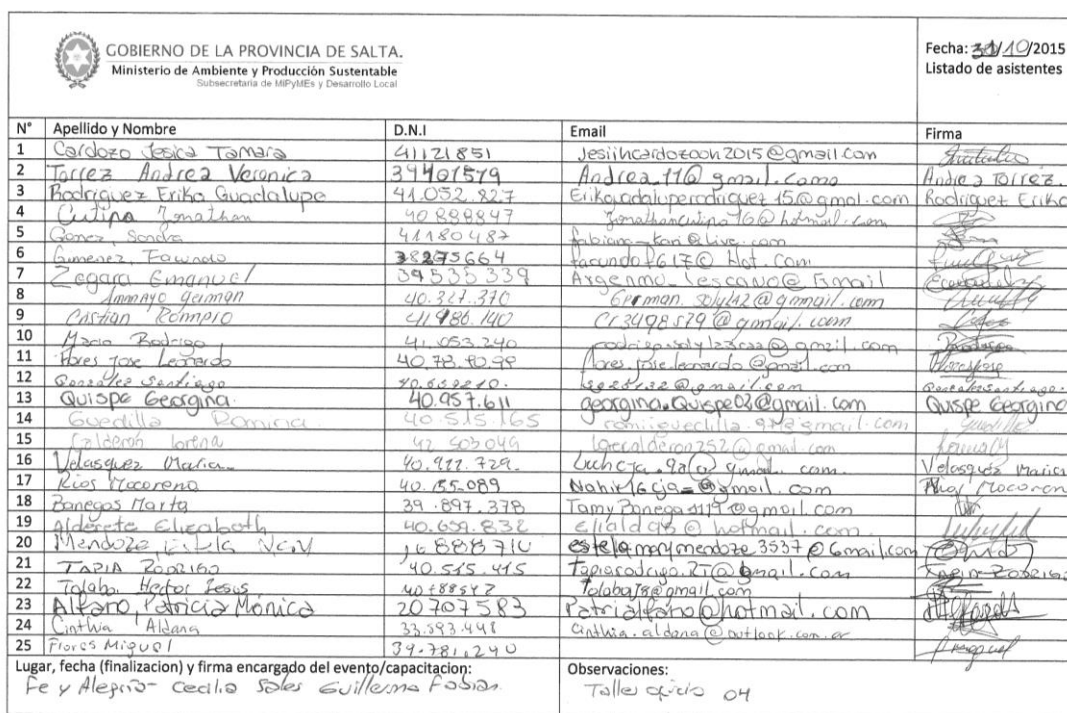 GOBIERNO DE LA PROVINCIA DE SALTA.
Ministerio de Ambiente y Producción Sustentable
Subsecretaria de MiPyMEs y Desarrollo Local
Fecha: 30/10/2015
Listado de asistentes
N° Apellido y Nombre D.N.I Email Firma
1 Cardozo Jesica Tamara 41121851 Jesiihcardozooh2015@gmail.com
2 Torrez Andrea Veronica 39401579 Andrea.11@gmail.como Andrea Torrez.
3 Rodriguez Erika Guadalupe 41.052.827 Erikaguadaluperodriguez15@gmal.com Rodriguez Erika
4 Cutipa Jonathan 40898847 Jonathancutipa16@hotmail.com
5 Gomez, Sandra 41180487 fabiana-kari@live.com
6 Gimenez, Facundo 38275664 facundof617@Hot.Com
7 Zegara Emanuel 39535339
8 German 40.327.370 German
9 Cristian 41986.140 Cr3498579@gmail.com
10 Rodrigo 41.053.240
11 Flores Jose Leonardo flores.jose.leonardo@gmail.com
12 Gonzalez Santiago 40.659210. Gonzalez Santiago.
13 Quispe Georgina. 40.957.611 georgina.Quispe02@gmail.com Quispe Georgina
14 Guedilla Romina 40.515.165 Guedilla
15 Calderon lorena 42 403049 lorecalderon252@gmail.com
16 Velasquez Maria. 40.922.729. Velasquez Maria
17 Rios Macarena 40.155.089 Rios Macarena
18 Banegas Marta 39.897.378
19 Alderete Elizabeth 40.659.832 eliald98@hotmail.com
20 Mendoza estelamarymendoze3537@Gmail.com
21 TAPIA RODRIGO 40.515.415 Tapiarodrigo.RT@gmail.Com TAPIA RODRIGO
22 Tolaba, Hector Jesus Tolaba78@gmail.com
23 Alfaro, Patricia Monica 20707583 Patrialfaro@hotmail.com
24 Cinthia Aldana 33.593.448 cinthia.aldana@outlook.com.ar
25 Flores Miguel 39.781.240
Lugar, fecha (finalizacion) y firma encargado del evento/capacitacion:
Fe y Alegria- Cecilia Sales Guillermo Fabian.
Observaciones:
Taller oficio 04